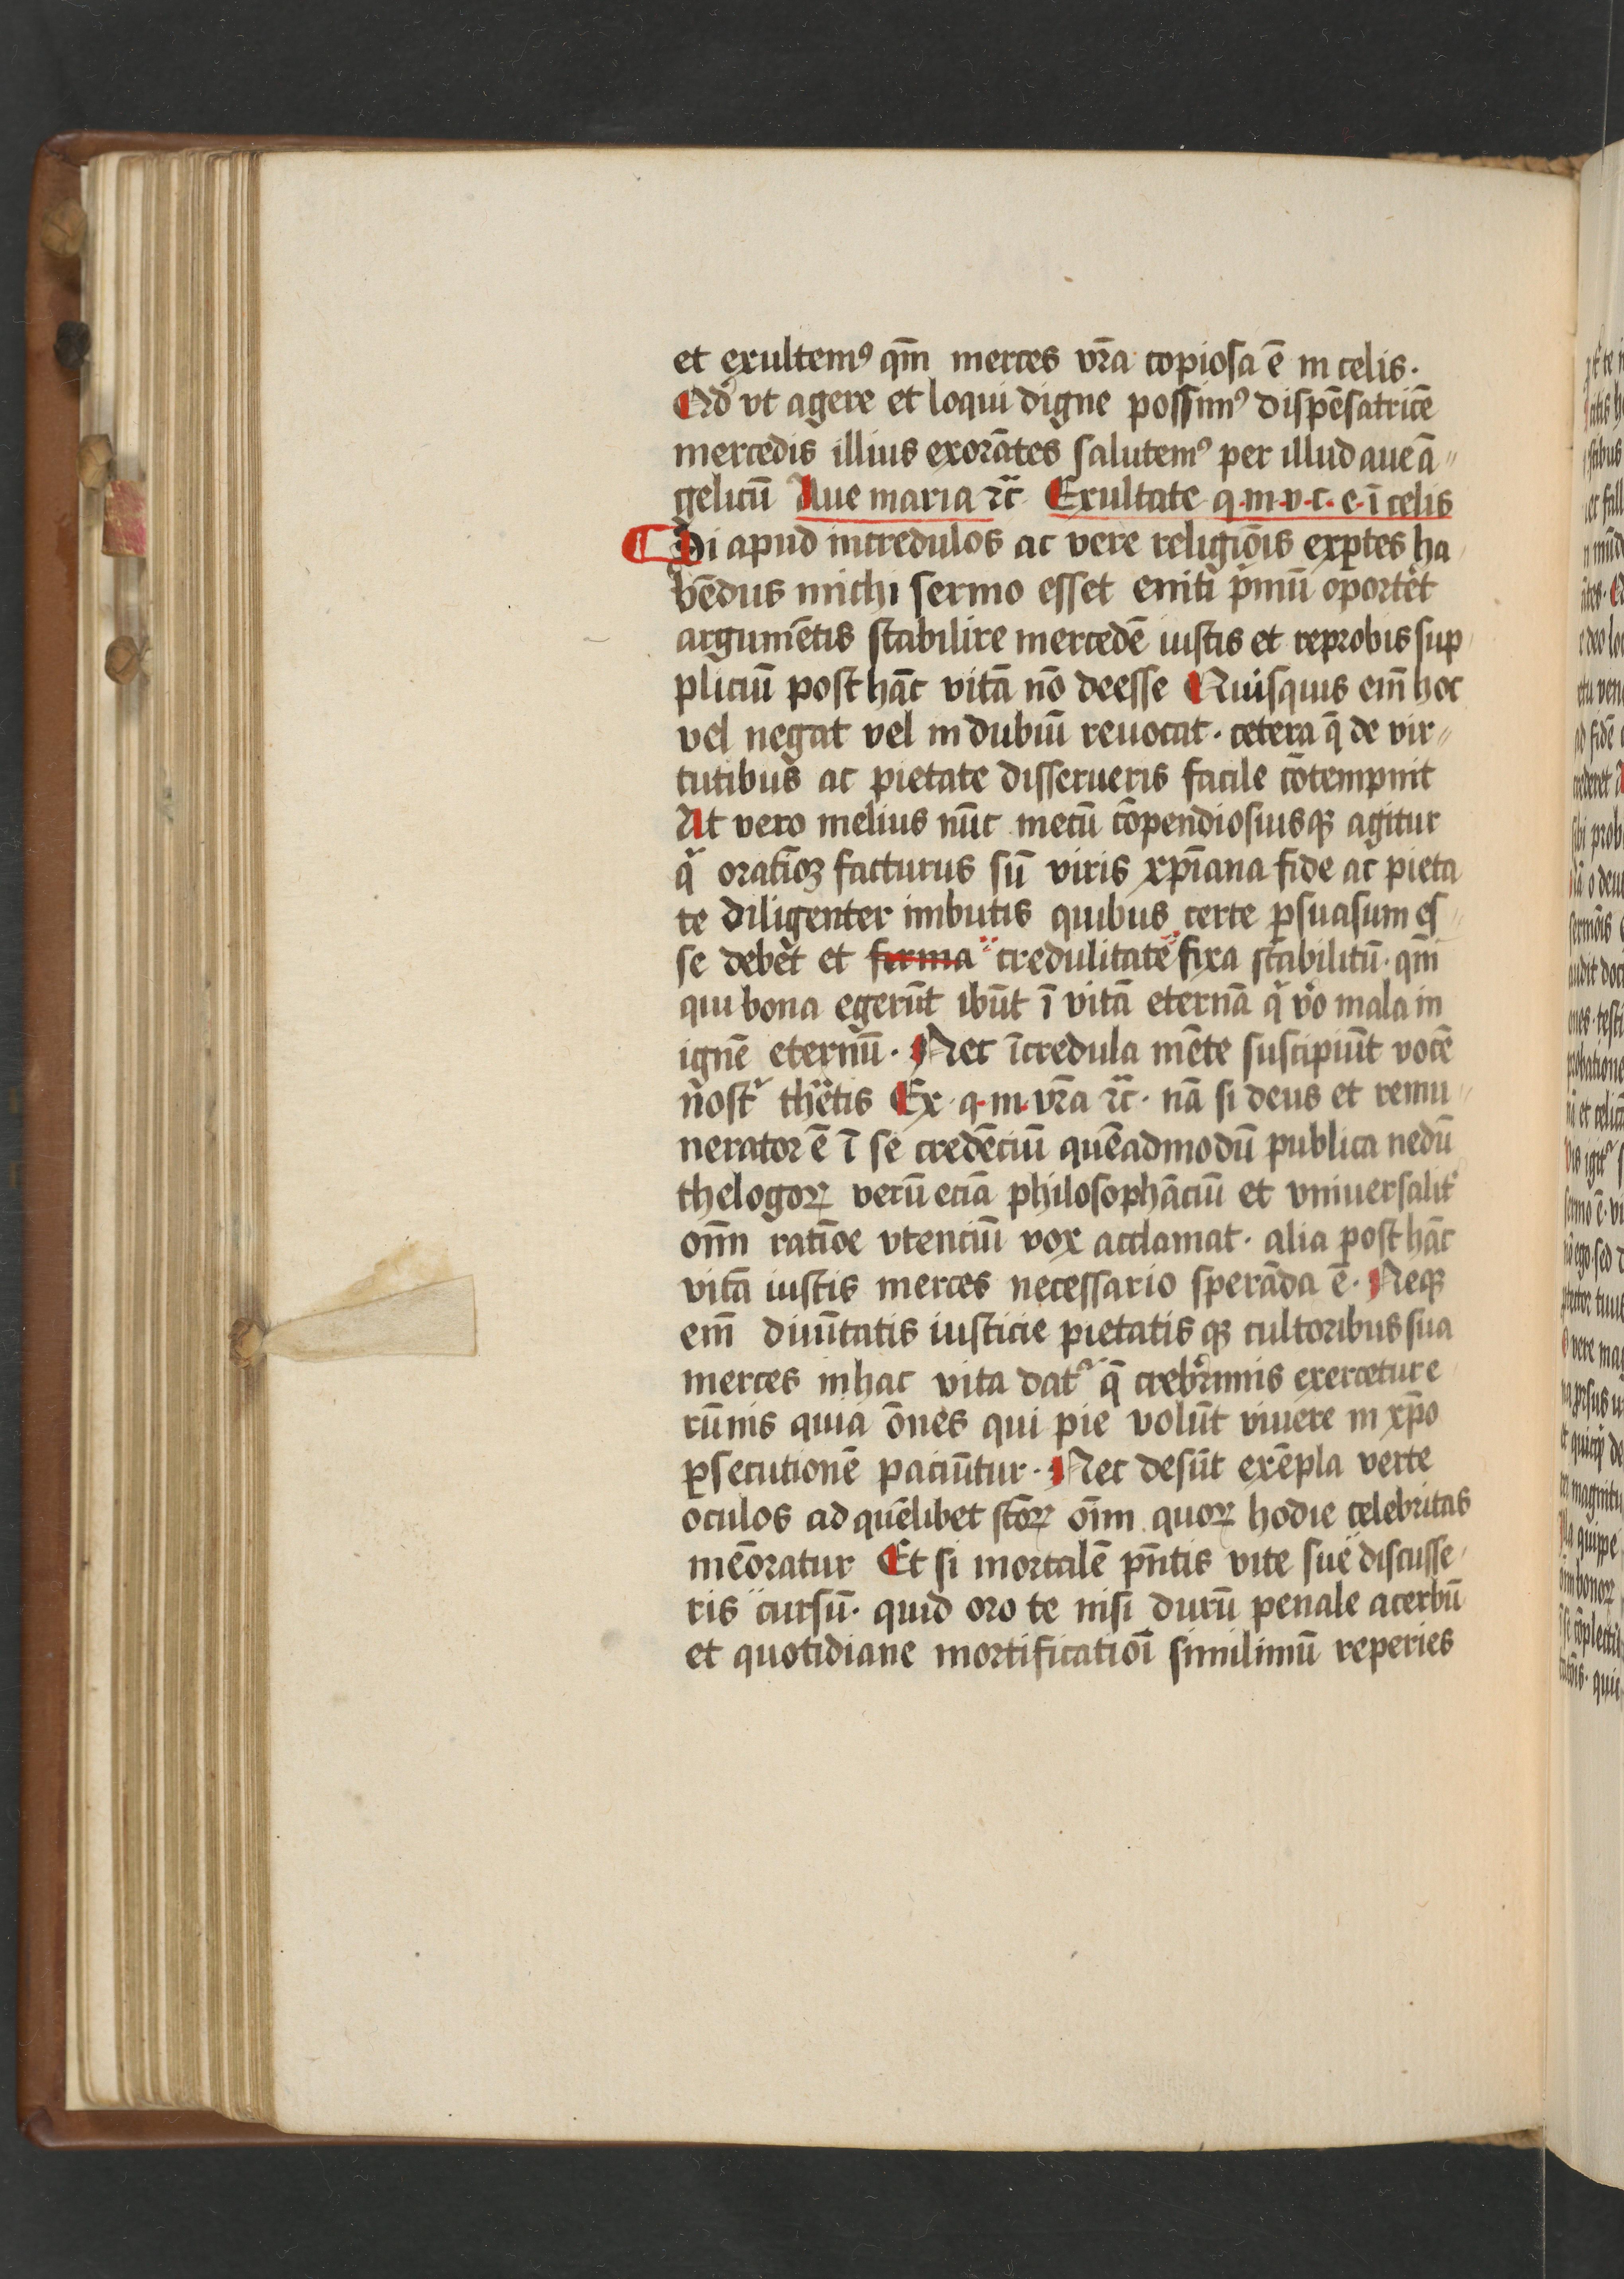 et exultemꝰ qm̄ merces vr̄a copiosa ē in celis·
Qd̓ vt agere et loqui digne possimꝰ dispēsatricē
mercedis illius exorātes salutemꝰ per illud aue ā〃
gelicū Aue maria ⁊c̄ Exultate q·m·v·c·e·ī celis
¶ Si apud incredulos ac vere religiōis exꝑtes ha
bēdus michi sermo esset eniti p̓mū oporte͛t
argumētis stabilire mercedē iustis et reprobis sup
pliciū post hāc vitā nō deesse Quisquis em̄ hoc
vel negat vel in dubiū reuocat· cetera q̄ de vir〃
tutibus ac pietate disserueris facile cōtempnit
At vero melius nūc mecū cōpendiosiusqꝫ agitur
qͥ oratiōꝫ facturus sū viris xp̄iana fide ac pieta
te diligenter imbutis quibus certe ꝑsuasum es〃
se debet et firma credulitate fixa stabilitū· qm̄
qui bona egerūt ibūt ī vitā eternā qͥ v̓o mala in
ignē eternū· Nec īcredula mēte suscipiūt vocē
nostͥ thetis Ex·q·m·vr̄a ⁊c̄· nā si deus et remu
nerator ē ī se credēciū quēadmodū publica nedū
thelogoꝝ verū eciā philosophāciū et vniuersalit͛
om̄n ratiōe vtenciū vox acclamat· alia post hāc
vitā iustis merces necessario sperāda ē· Neqꝫ
em̄ diuītatis iusticie pietatisqꝫ cultoribus sua
merces in hac vita datᷣ q̄ creb̓rimis exercetur e
rūnis quia ōnes qui pie volūt viuere in xp̄o
ꝑsecutionē paciūtur· Nec desūt exēpla verte
oculos ad quēlibet sc̄oꝝ oīm quoꝝ hodie celebritas
meōratur Et si mortalē pn̄tis vite sue discusse
ris cursū· quid oro te nisi durū penale acerbū
et quotidiane mortificatiōi similimū reperies